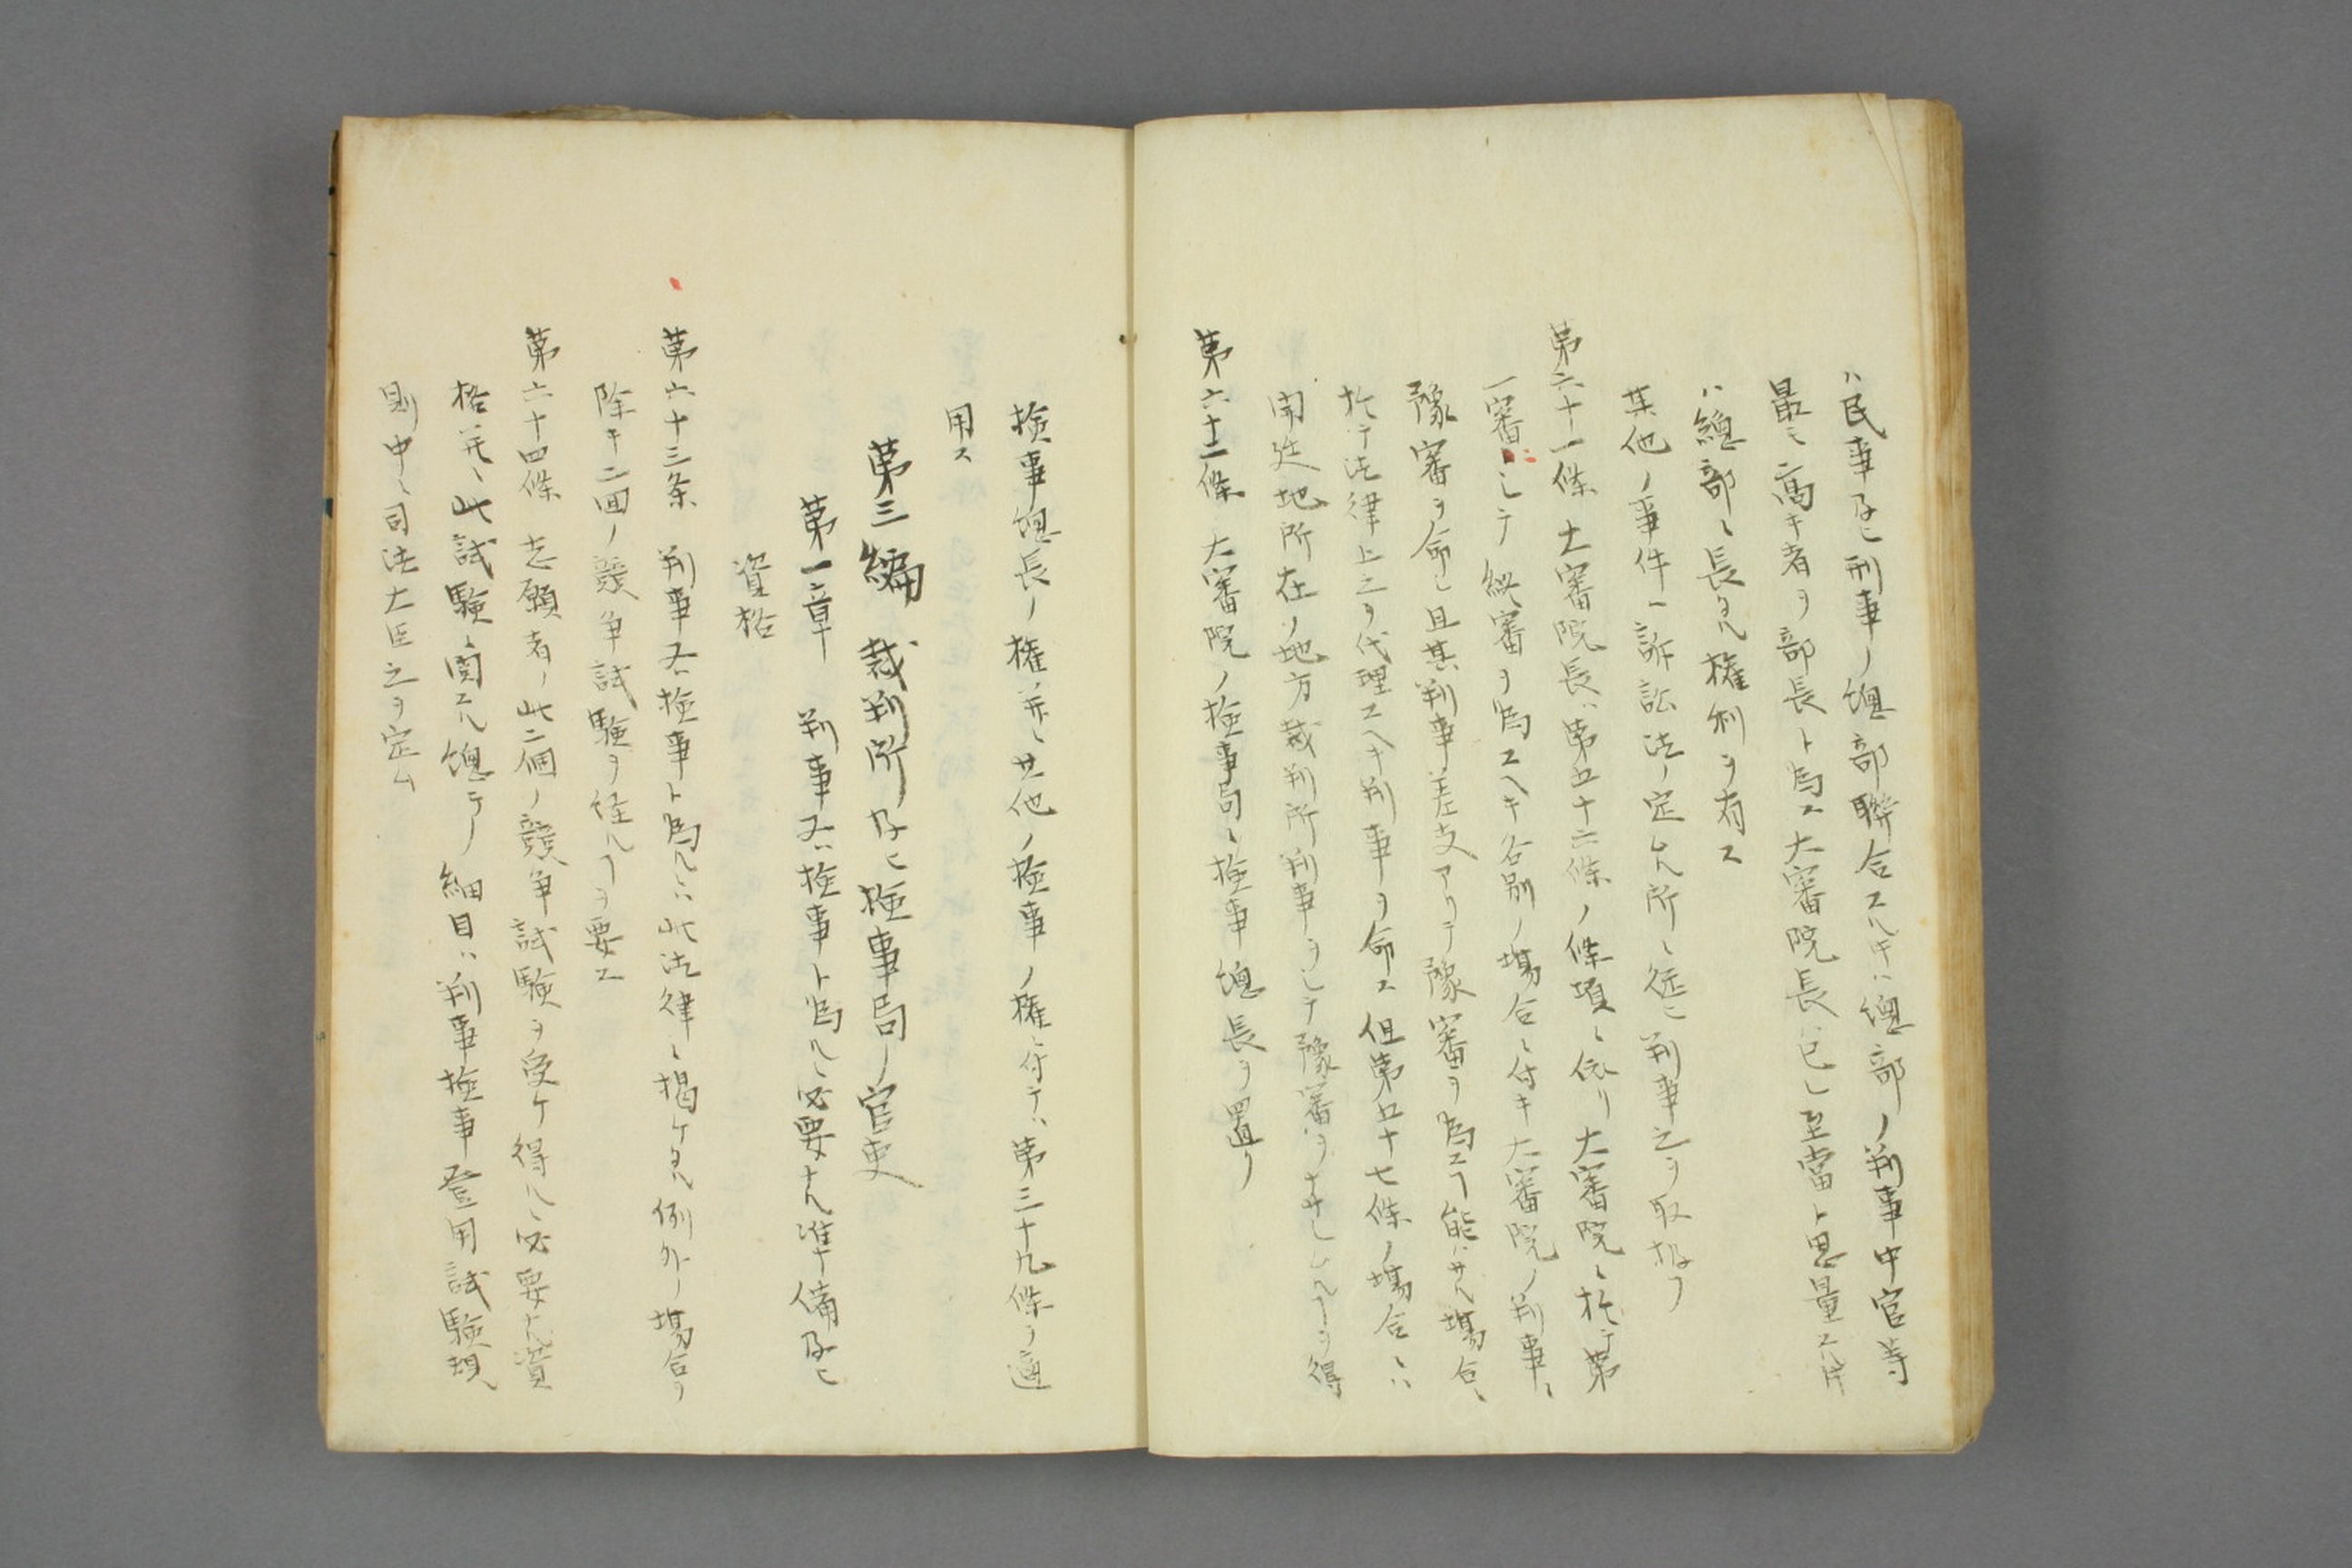 ハ民事及ヒ刑事ノ總部聯合スル片ハ總部ノ判事中官等
最モ高キ者ヲ部長ト爲ス大審院長ハ已レ至當ト思量スル片
ハ總部ニ長タル權利ヲ有ス
其他ノ事件ハ訴訟法ノ定ムル所ニ從ヒ判事之ヲ取扱フ
第六十一條 大審院長ハ第五十二條ノ條項ニ依リ大審院ニ於テ第
一審ニシテ終審ヲ爲スヘキ各別ノ場合ニ付キ大審院ノ判事ニ
豫審ヲ命シ且其判事差支アリテ豫審ヲ爲スヿ能ハサル場合ニ
於テ法律上之ヲ代理スヘキ判事ヲ命ス但第五十七條ノ場合ニハ
開廷地所在ノ地方裁判所判事ヲシテ豫審ヲナサシムルヿヲ得
第六十二條 大審院ノ檢事局ニ檢事總長ヲ置ク
檢事總長ノ權并ニ其他ノ檢事ノ權ニ付テハ第三十九條ヲ適
用ス
第三編 裁判所及ヒ檢事局ノ官吏
第一章 判事又ハ檢事ト爲ルニ必要ナル準備及ヒ
資格
第六十三条 判事又ハ檢事ト爲ルニハ此法律ニ揭ケタル例外ノ場合ヲ
除キ二回ノ競争試験ヲ経ルヿヲ要ス
第六十四條 志願者ノ此二個ノ競争試験ヲ受ケ得ルニ必要ナル資
格並ニ此試験ニ関スル總テノ細目ハ判事檢事登用試験規
則中ニ司法大臣之ヲ定ム